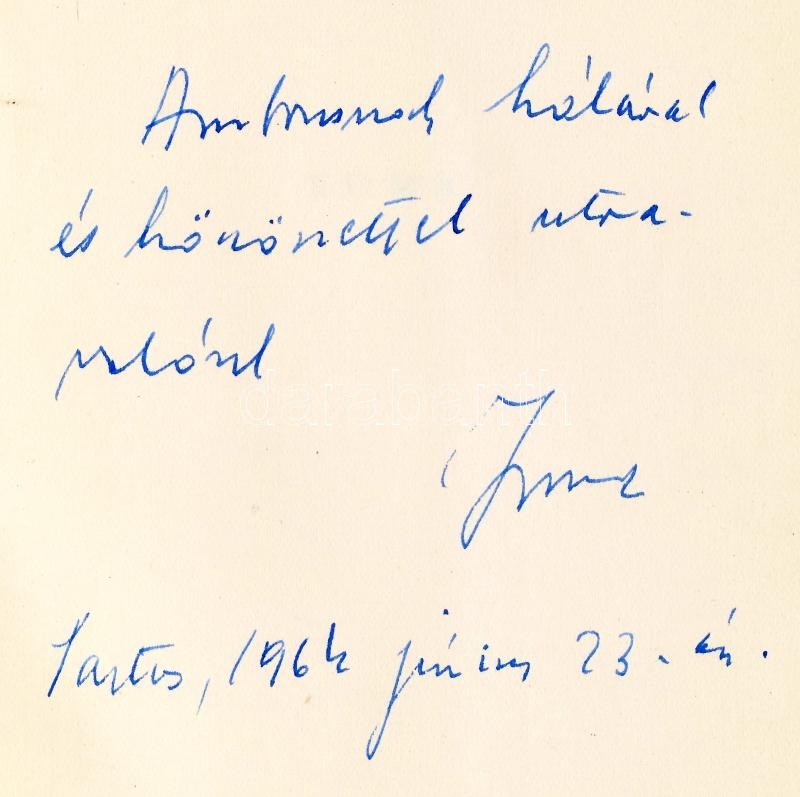 Ambrusnak hálával
és köszönettel utra-
valóul
darabanth
Imre
1964 június 23.-án.